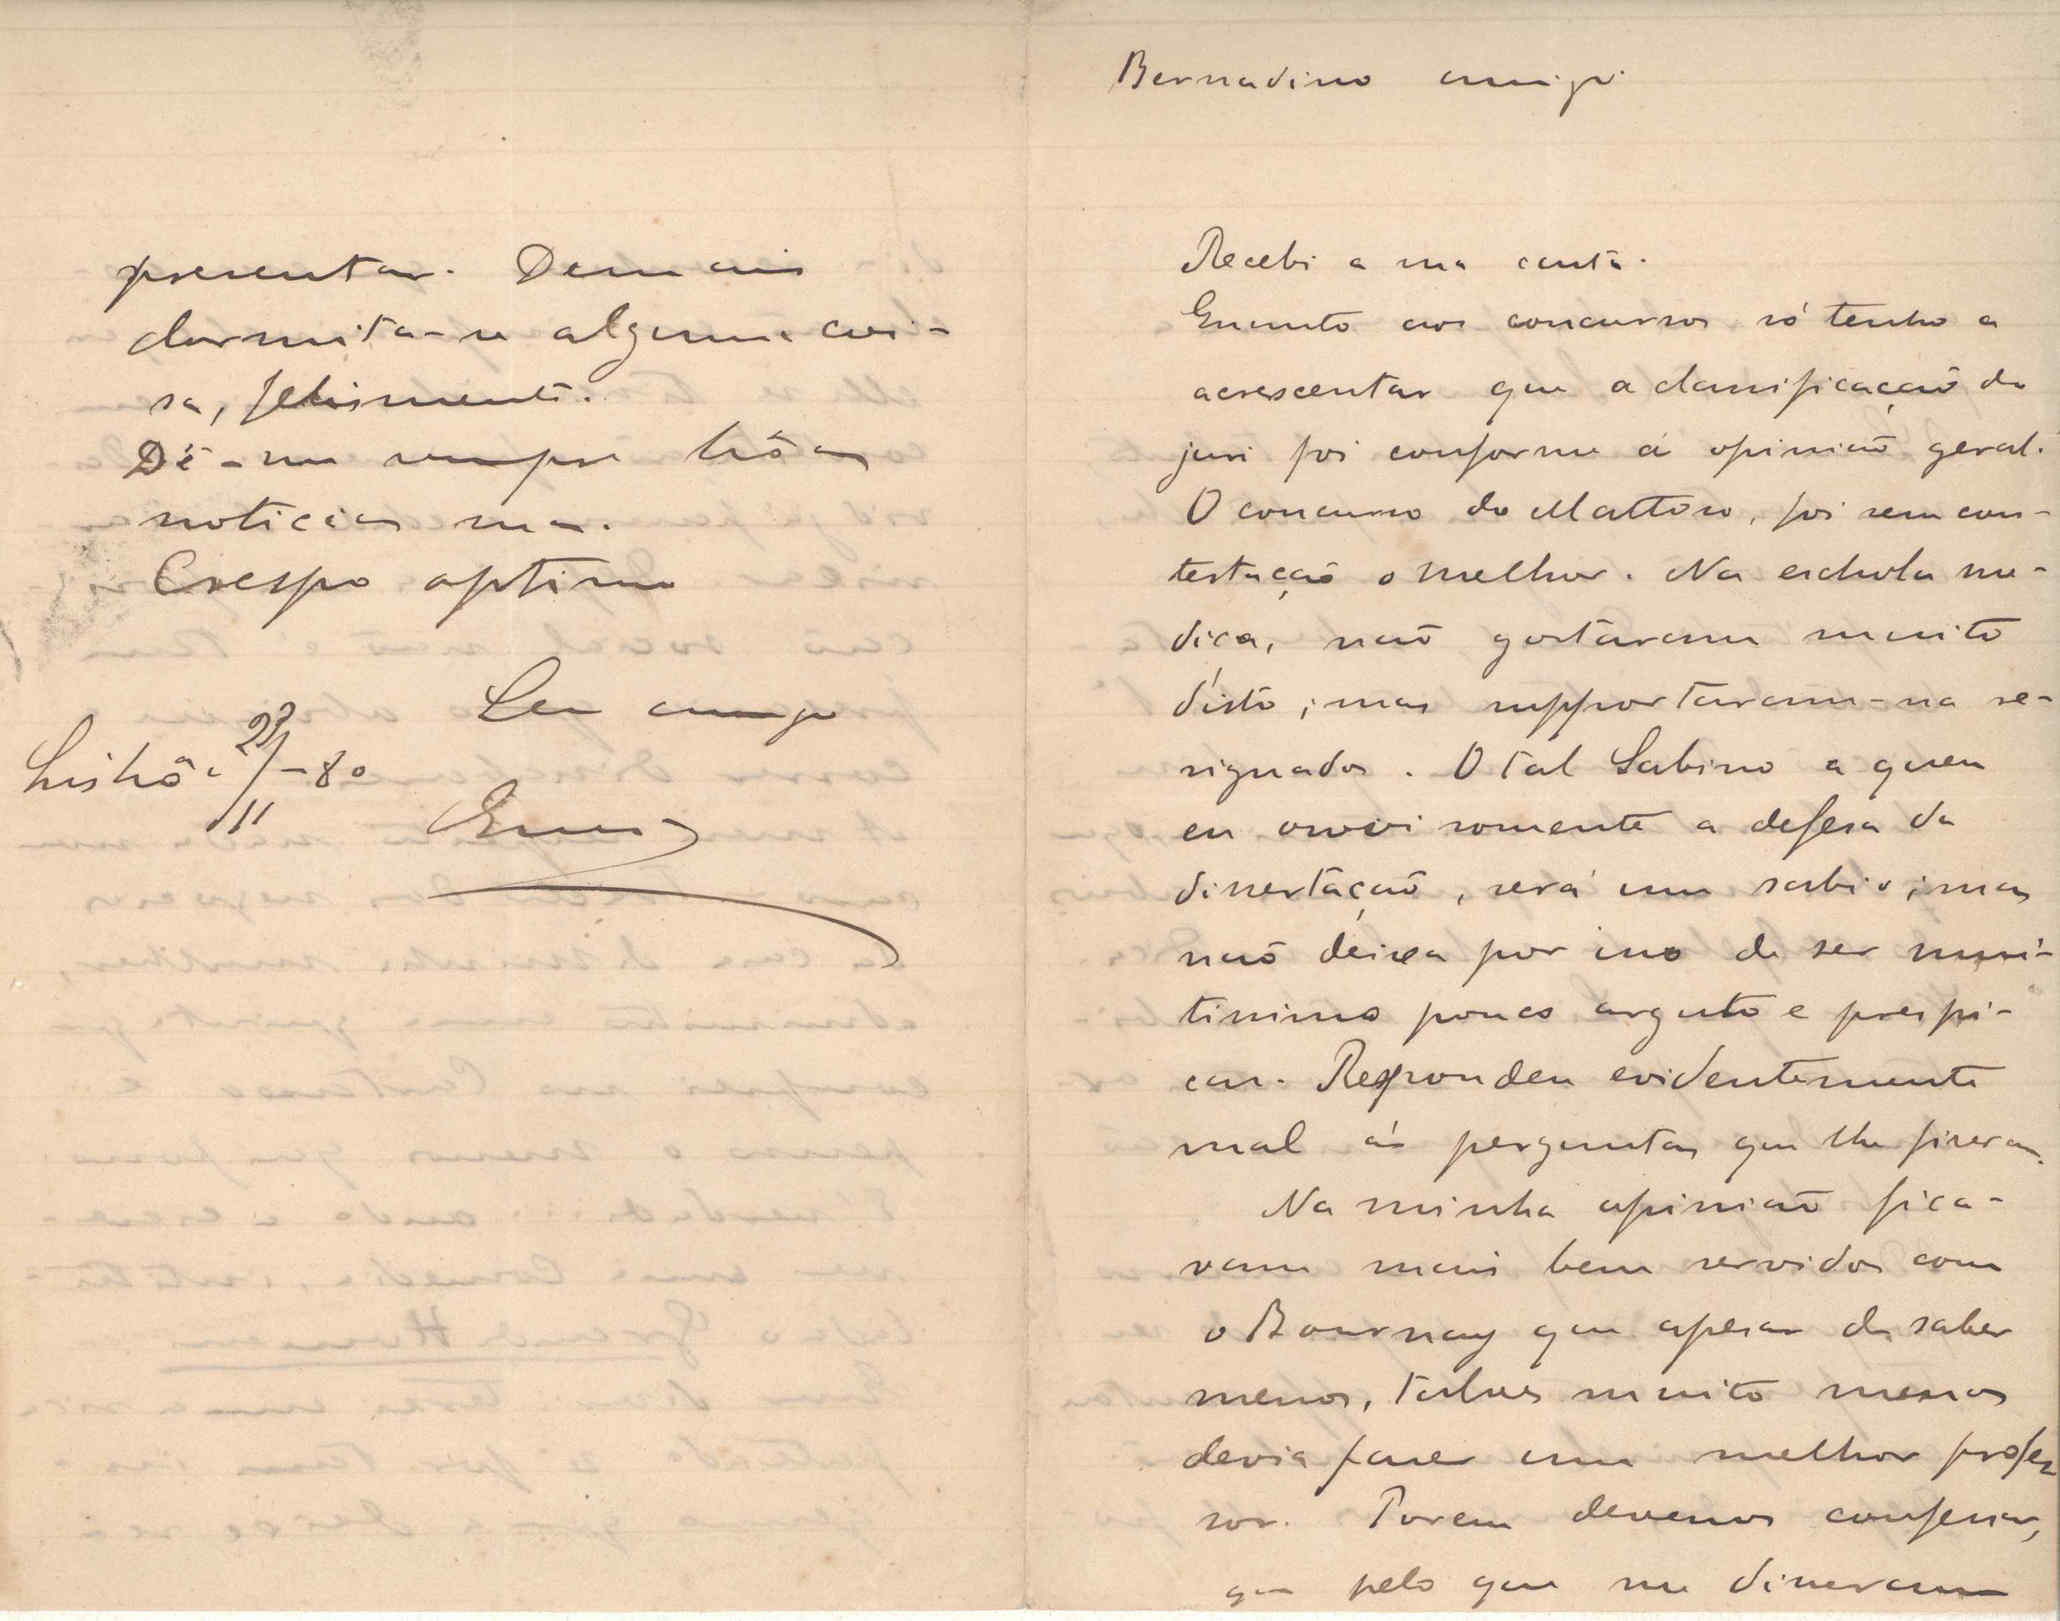 Bernardino amigo
Recebi a sua carta.
Emquanto aos concursos só tenho a
acrescentar que a classificação do
juri foi conforme á opinião geral.
O concurso do Mattoso, foi sem con-
testação o melhor. Na eschola me-
dica, não gostaram muito
d'isto; mas supportaram-na re-
signados. O tal Sabino a quem
eu ouvi somente a defesa da
dissertação, será um sabio; mas
não deixa por isso de ser mui-
tissimo pouco arguto e prespi-
caz. Respondeu evidentemente
mal ás perguntas que lhe fizeram.
Na minha opinião fica-
vam mais bem servidos com
o Bournay que apesar de saber
menos, talvez muito menos
devia fazer um melhor profes
sor. Porem devemos confessar,
que pelo que me disseram
presentar. Demais
dormita-se alguma coi-
sa, felismente.
Dê-me sempre bôas
noticias suas.
Crespo optimo
Seu amigo
Lisbôa 23/11-80